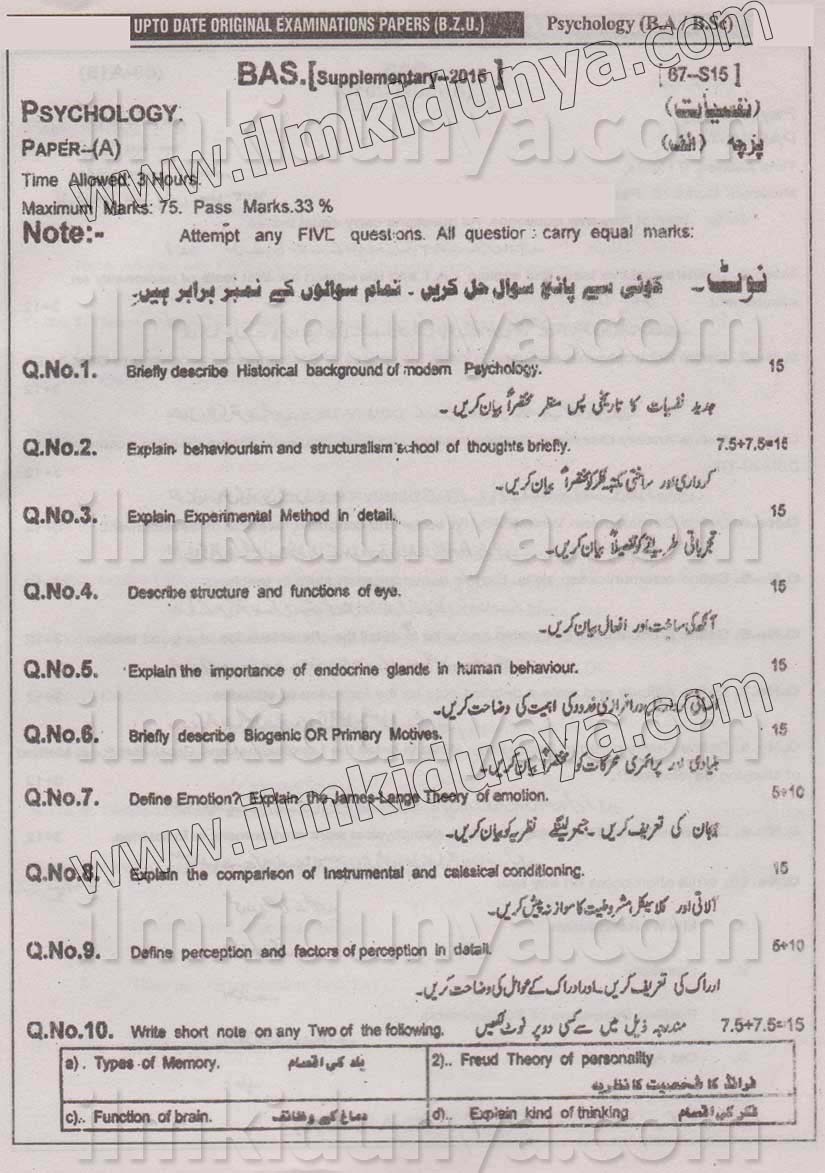 UPTO DATE ORIGINAL EXAMINATIONS PAPERS (B.Z.U.) Psychology (B.A / B.Sc)
BAS.[Supplementary--2015] [67--S15]
PSYCHOLOGY. (نفسیات)
PAPER--(A) پرچہ (الف)
Time Allowed: 3 Hours.
Maximum Marks: 75. Pass Marks.33 %
Note:- Attempt any FIVE questions. All question: carry equal marks:
نوٹ۔ کوئی سے پانچ سوال حل کریں ۔ تمام سوالوں کے نمبر برابر ہیں۔
Q.No.1. Briefly describe Historical background of modern Psychology. 15
جدید نفسیات کا تاریخی پس منظر مختصراً بیان کریں ۔
Q.No.2. Explain behaviourism and structuralism school of thoughts briefly. 7.5+7.5=15
کرداری اور ساختی مکتبہ فکر کو مختصراً بیان کریں۔
Q.No.3. Explain Experimental Method in detail. 15
تجرباتی طریقے کو تفصیلاً بیان کریں۔
Q.No.4. Describe structure and functions of eye. 15
آنکھ کی ساخت اور افعال بیان کریں۔
Q.No.5. Explain the importance of endocrine glands in human behaviour. 15
انسانی کردار میں درافرازی غدود کی اہمیت کی وضاحت کریں۔
Q.No.6. Briefly describe Biogenic OR Primary Motives. 15
بنیادی اور پرائمری محرکات کو مختصراً بیان کریں۔
Q.No.7. Define Emotion? Explain the James-Lange Theory of emotion. 5+10
ہیجان کی تعریف کریں ۔ جیمز لینگے نظریہ کو بیان کریں۔
Q.No.8. Explain the comparison of Instrumental and calssical conditioning. 15
آلاتی اور کلاسیکل مشروطیت کا موازنہ پیش کریں۔
Q.No.9. Define perception and factors of perception in datail. 5+10
ادراک کی تعریف کریں۔ اور ادراک کے عوامل کی وضاحت کریں۔
Q.No.10. Write short note on any Two of the following. مندرجہ ذیل میں سے کسی دو پر نوٹ لکھیں 7.5+7.5=15
a). Types of Memory. یاد کی اقسام 2).. Freud Theory of personality
فرائڈ کا شخصیت کا نظریہ
c).. Function of brain. دماغ کے وظائف d).. Explain kind of thinking فکر کی اقسام
www.ilmkidunya.com
www.ilmkidunya.com
ilmkidunya.com
ilmkidunya.com
ilmkidunya.com
ilmkidunya.com
ilmkidunya.com
ilmkidunya.com